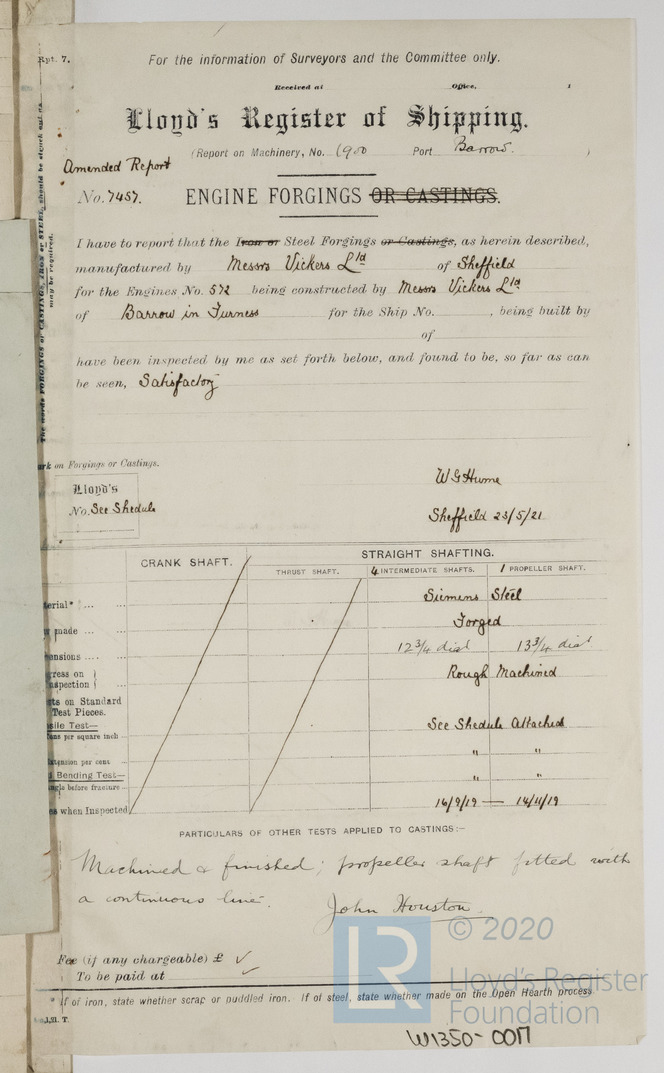 Rpt. 7.
For the information of Surveyors and the Committee only.
Received at Office,
Lloyd's Register of Shipping.
(Report on Machinery, No. 1900 Port Barrow.)
Amended Report
No. 7457. ENGINE FORGINGS OR CASTINGS.
I have to report that the Iron or Steel Forgings or Castings, as herein described,
manufactured by Messrs Vickers Ltd of Sheffield
for the Engines No. 572 being constructed by Messrs Vickers Ltd
of Barrow in Furness for the Ship No. , being built by
of
have been inspected by me as set forth below, and found to be, so far as can
be seen, Satisfactory
The words FORGINGS or CASTINGS, IRON or STEEL, should be struck out as
may be required.
ark on Forgings or Castings.
Lloyd's
No. See Shedule
W G Hume
Sheffield 23/5/21
CRANK SHAFT. STRAIGHT SHAFTING.
THRUST SHAFT. 4 INTERMEDIATE SHAFTS. 1 PROPELLER SHAFT.
terial* ... ... Siemens Steel
made ... ... Forged
ensions ... ... 12 3/4 diar 13 3/4 diar
gress on
spection Rough Machined
ts on Standard
Test Pieces.
sile Test— See Shedule Attached
ons per square inch ...
xtension per cent " "
Bending Test—
ngle before fracture ... " "
es when Inspected 16/9/19 — 14/11/19
PARTICULARS OF OTHER TESTS APPLIED TO CASTINGS:-
Machined & finished; propeller shaft fitted with
a continuous liner.
John Houston.
Fee (if any chargeable) £ ✓
To be paid at ✓
* If of iron, state whether scrap or puddled iron. If of steel, state whether made on the Open Hearth process
LR © 2020
Lloyd's Register
Foundation
W1350-0017